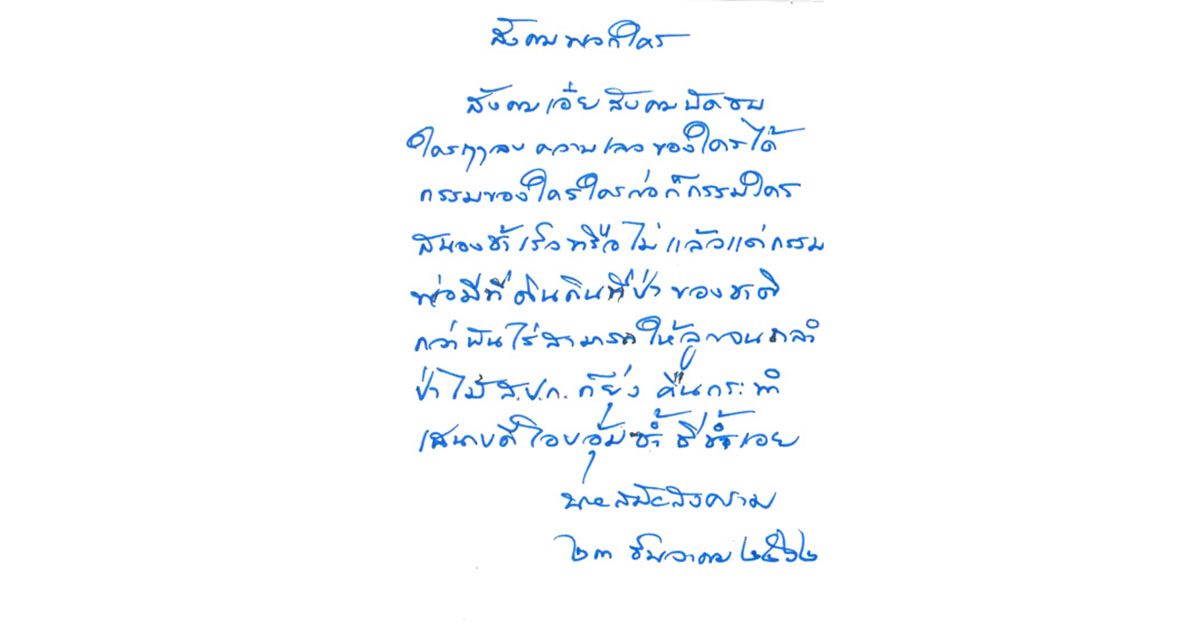 สังคมพวกใคร
สังคมเอ๋ยสังคมปัดชน
ใครฤๅลบความเลวของใครได้
กรรมของใครใครก่อก็กรรมใคร
สนองช้าเร็วหรือไม่แล้วแต่กรรม
พ่อมีที่ดินที่ป่าของชาติ
กว่าพันไร่สามารถให้ลูก
ป่าไม้ ส.ป.ก. ก็ยุ่ง คืนกระทำ
เสนาบดีโอบอุ้มซ้ำชี้ช้ำเอย
๒๓ ธันวาคม ๒๕๖๒